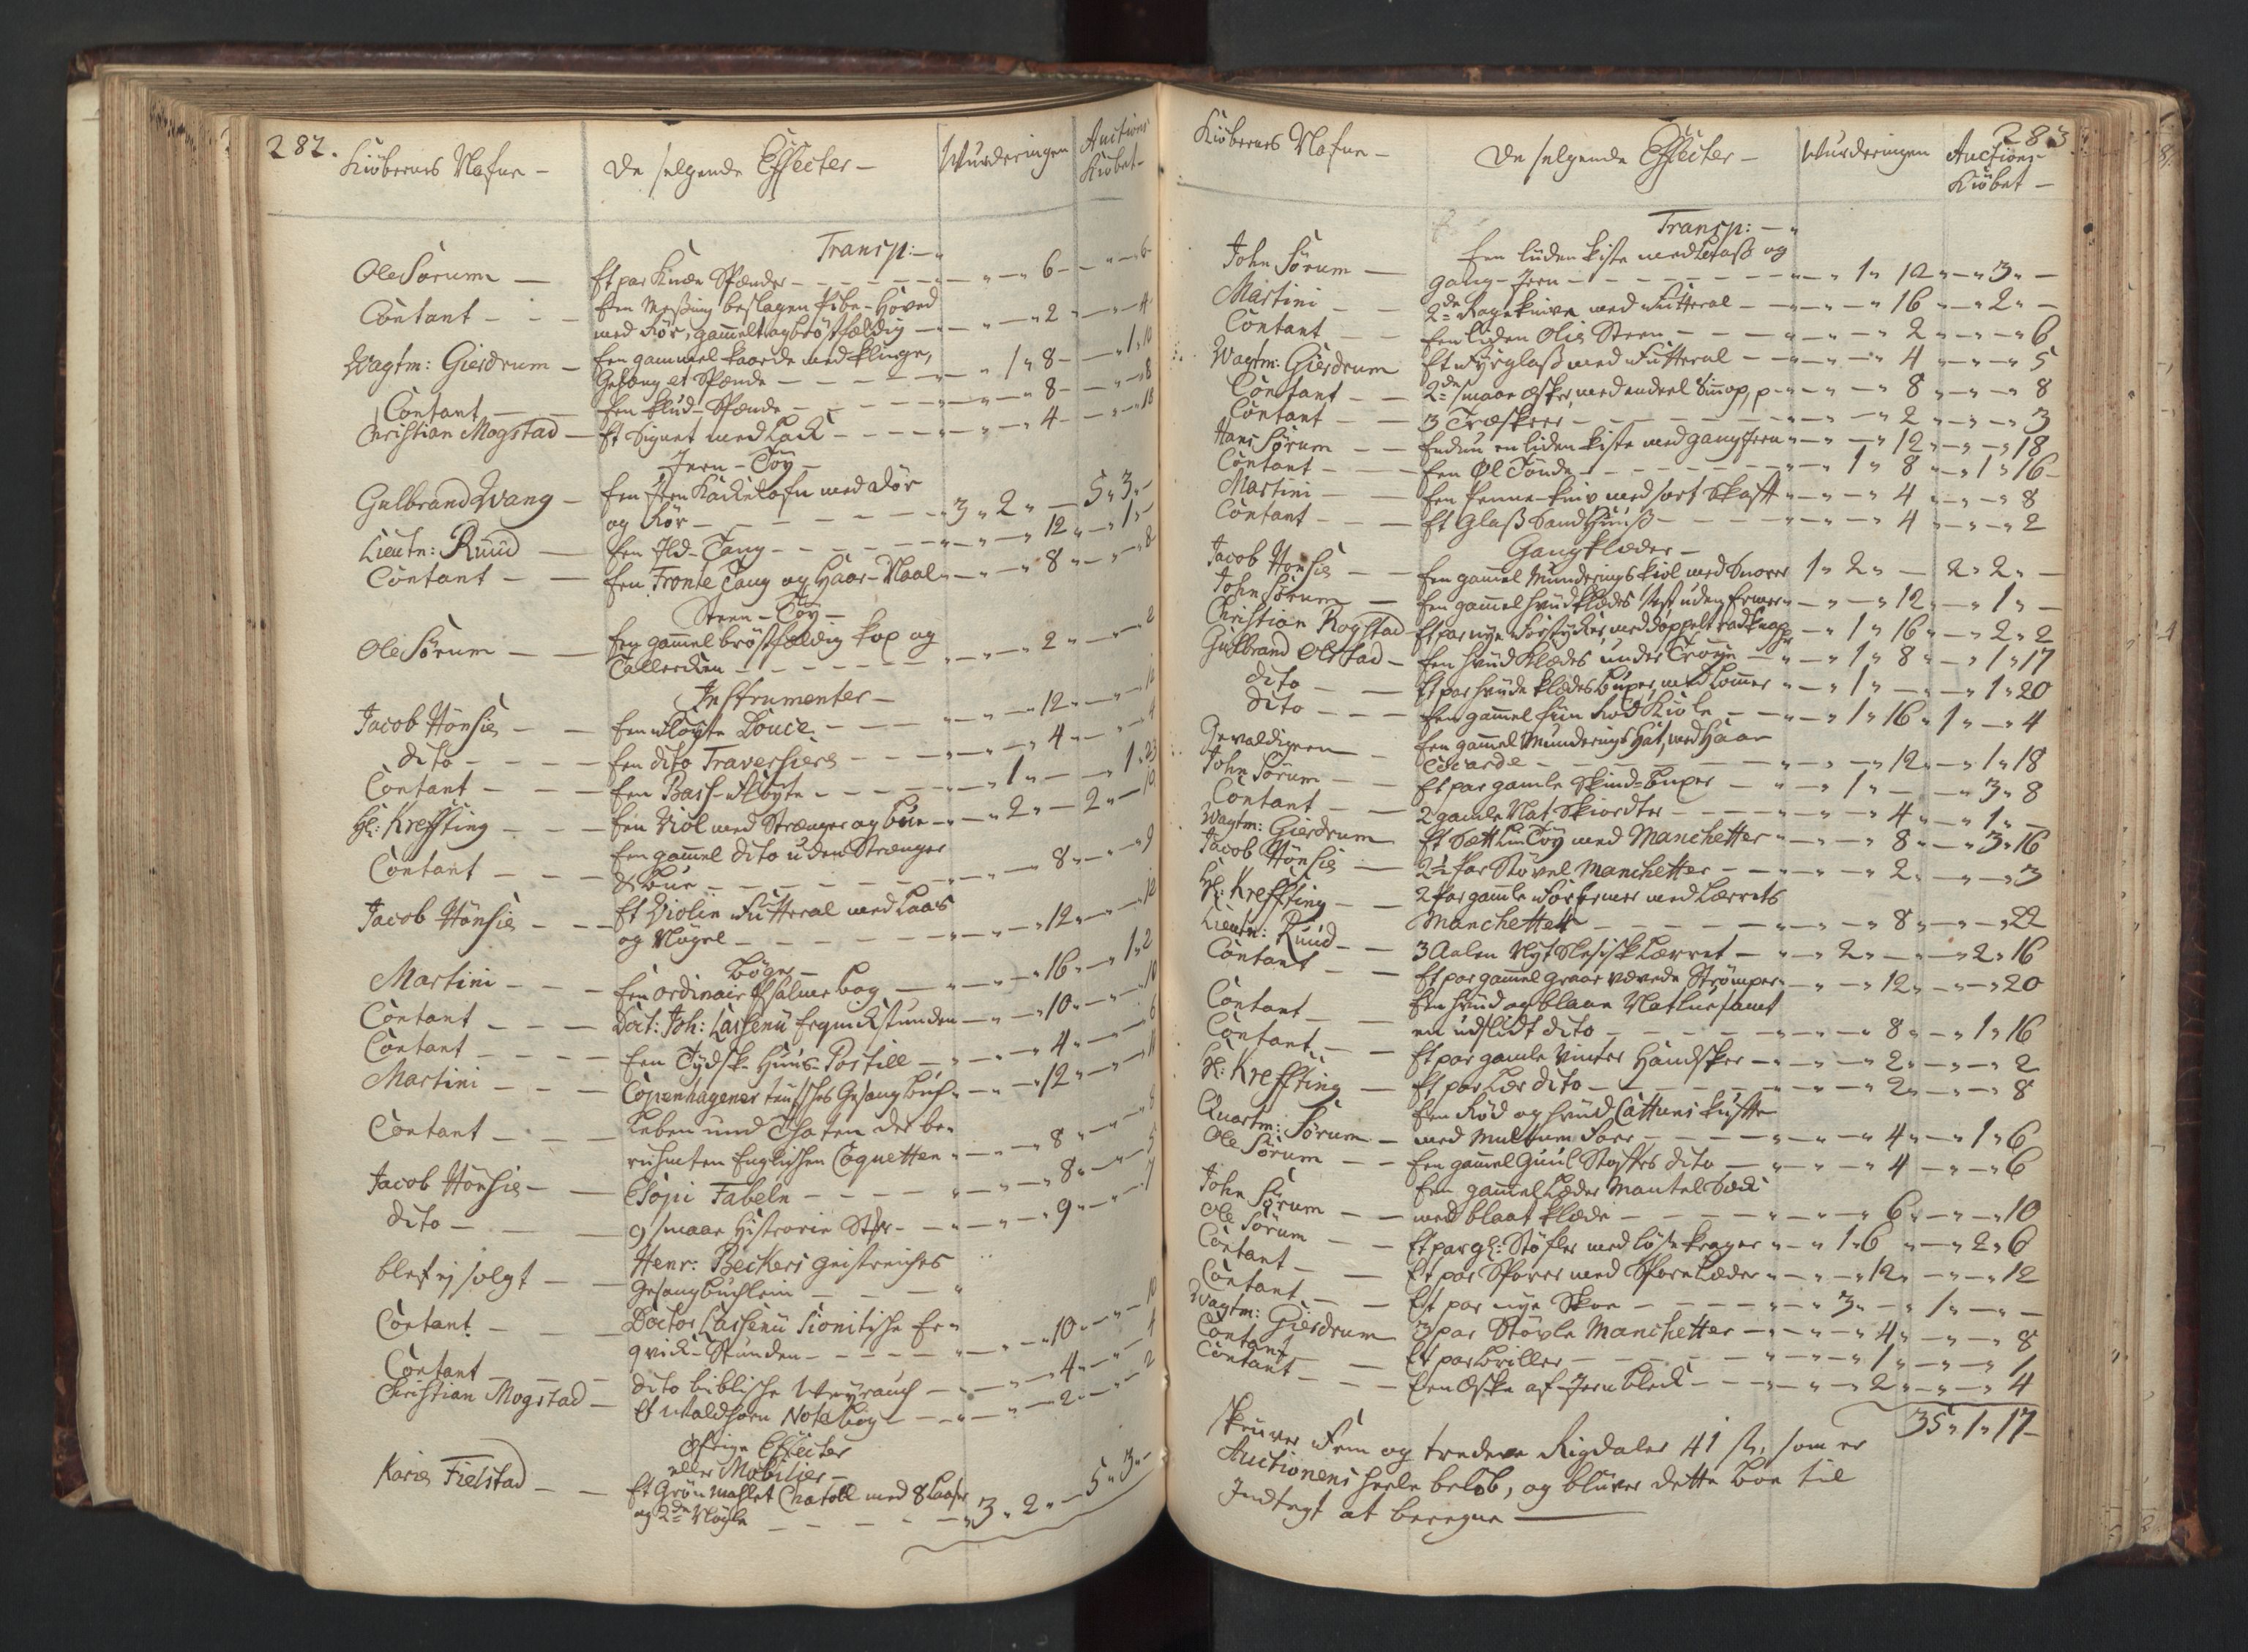 282.
Kiöbernes Nafne – De solgende Effecter – Wurderingen Auctions
Kiöbet –
Transp: – "
Ole Sørum — Et par Knæe Spænder – – – " – " – 6 – " – " – 6 –
Contant – – – Een Messing beslagen Pibe-Hoved
med Rör, gammelt og bröstfældig – " – " – 2 – " – " – 4
Wagtm: Gierdrum – Een gammel kaarde med Klinge,
Gehæng et Spænde – – – – – " – " 1 " 8 – " – 1 " 10
Contant – – Een Skud-Spænde – – – – " – " – 8 – " – " – 8
Christian Mogstad – Et Signet med Lack – – – – " – " – 4 – " – " – 18
Jern-Töy –
Gulbrand Wang – Een Jern Kackelofn med Dör
og Rör – – – – – – – " 3 " 2 " — 5 " 3 " –
Lieutn: Ruud — Een Ild-Tang – – – – – " – " – " 12 " – " 1 " –
Contant – — Een Fronte Tang og Haar-Naal " – " – " 8 " – " – " 8
Steen-Töy –
Ole Sørum – — Een gammel bröstfældig kop og
Tallerken – – – – – – – " – " – " 2 " – " – " 2
Instrumenter –
Jacob Hönsie – – Een Floyte Douce – – – " – " – 12 – " – " – 12
Dito – – – – Een dito Traversiere – – – " – " – " 4 – " – " – 4
Contant – – – Een Bass-Floyte – – – – – " – " 1 " – " – " 1 " 23
Hl: Kreffting – – – Een Viol med Strænger og bue – " – " 2 " – 2 " – 10
Contant – – – Een gammel dito uden Strænger
& bue – – – – – – – – " – " – 8 " – " – " 9
Jacob Hönsie – – – Et Violin Futteral med Laas
og Nögel – – – – – – – " – " – " 12 " – " – 12
Böger –
Martini – – – Een ordinair Psalme bog — " – " – 16 " – " 1 " 2
Contant – – – Doct: Joh: Lassenii Erquickstunden – " – " 10 " – " – 10
Contant – – – – Een Tydsk-Huus-Postill – " – " – 4 " – " – 6
Martini – – – Copenhagener teutsches Gesang buch " – " 12 " – " – 11
Contant – – – Leben und Thaten der be-
ruhmten Englischen Coquetten " – " – " 8 " – " – 8
Jacob Hönsie – — Esopi Fabeln – – – – " – " – 8 " – " – 5
Dito – – – 9 smaae Historie Sthr – – " – " – " 9 " – " – 7
blef ej solgt – — Henr: Beckers geistreiches
Gesangbüchlein – – – – "
Contant – – – Doctor Lassenii Sionitische Er-
qvick-Stunden – – – – – " – " – 10 " – " – 10
Contant – – – dito biblische Weyrauch – " – " – 4 " – " – 4
Christian Mogstad – Et Waldhorn Note bog – – " – " – 2 " – " – 2
Öfrige Effecter
eller Mobilier –
Karie Fielstad – — Et Grön mahlet Chatoll med 8 Laase
og 2de Nögle – – – – – " 3 " 2 " – 5 " 3 " –
283
Kiöbernes Nafne – De solgende Effecter – Wurderingen Auctions-
Kiöbet –
Transp: – "
John Sörum — Een liiden kiste med Laass og
gang-Jern – – – – – – – " – " 1 " 12 " – " 3 " –
Martini – – 2de Rageknive med Futteral – " – " – " 16 " – " 2 " –
Contant – – Een liden Olie Steen – – – – " – " – 2 " – " – " 6
Wagtm: Gierdrum Et Fyrglass med Futteral – " – " – " 4 " – " – " 5
Contant – – 2de smaae Æsker, med endeel Sinop, p – " – " – " 8 " – " – " 8
Contant – – 3 Træskeer – – – – – – – " – " – " 2 " – " – " 3
Hans Sörum – – Endnu en liden kiste med gang Jern " – " – " 12 " – " – " 18
Contant – – – Een Øl Tønde – – – – – – " – " 1 " 8 " – " 1 " 16 –
Martini – — Een Penne-kniv med sort Skaft – " – " – " 4 " – " – " 8
Contant – — Et Glass Sand Huuss – – – – " – " – " 4 " – " – " 2
Gangklæder –
Jacob Hönsie – – Een gammel Munderings kiol med Snorer 1 " 2 " — 2 " 2 " –
John Sörum — Een gammel hviid klædes vest uden Ermer " – " – " 12 " – " 1 " –
Christian Rogstad Et par nye Forstycker, med doppelt rad knaper – " 1 " 16 " – " 2 " 2
Gulbrand Olstad – Een hviid Klædes under Tröye – " – " 1 " 8 " – " 1 " 17
Dito – — Et par hviide klædes buxer, med Lommer " – " 1 " – " – " 1 " 20
Dito – – – Een gammel fiin Rød kiole – – " – " 1 " 16 " 1 " – " 4
Gevaldigeren – Een gammel Munderings Hat, med Haar
Cocarde – – – – – – – – " – " – " 12 " – " 1 " 18
John Sörum – – Et par gamle Skind-buxer – " – " 1 " – " – " 3 " 8
Contant – — 2 gamle Nat-Skiorter – – – – " – " – 4 " – " 1 " –
Wagtm: Gierdrum Et Sætt Lin Töy med Manchetter – " – " – 8 " – " 3 " 16
Jacob Hönsie — 2½ Par Stövel Manchetter – – " – " – 2 " – " – " 3
Hl: Kreffting – – 2 Par gamle Forermer med Lærrets
Manchetter – – – – – – " – " – " 8 " – " – " 22
Lieutn: Ruud – – 3 Aalen Nyt Slesisk Lærret – " – " 2 " – " – " 2 " 16
Contant – — Et par gammel graae vævede Strömper " – " – " 12 " – " – " 20
Contant – — Een hviid og blaae Nathue samt
en udslidt dito – – – – – " – " – " 8 " – " 1 " 16
Contant – – Et par gamle Vinter Handsker – " – " – " 2 " – " – " 2
Hl: Kreffting — Et par Lær dito – – – – – – " – " – " 2 " – " – " 8
Quartm: Sörum – Een Röd og hviid Cattuns kufte
med Multum Foer – – – – – " – " – " 4 " – " 1 " 6
Ole Sörum – – Een gammel Guul Stoffes dito — " – " – " 4 – " – " 6
John Sörum – – Een gammel Læder Mantel Sæck
med blaat Klæde – – – – – " – " – " 6 " – " – " 10
Ole Sörum – – Et par gl: Støfler med löse krager " – " 1 " 6 " – " 2 " 6
Contant – — Et par Sporer med Spore Læder " – " – " 12 " – " – " 12
Contant – — Et par nye Skoe – – – – – " – " 3 " – " 1 " – " –
Wagtm: Gierdrum 3 par Stövle Manchetter – " – " – 4 " – " – " 8
Contant – — Et par briller – – – – – – " – " – " 1 " – " – " 1
Contant – – – Een Æske af Jern bleck – – – " – " – 2 " – " – " 4
35 " 1 " 17 –
Skriver Fem og tredeve Rigdaler 41 s., som er
Auctionens heele belöb, og bliver dette boe til
Indtegt at beregne —